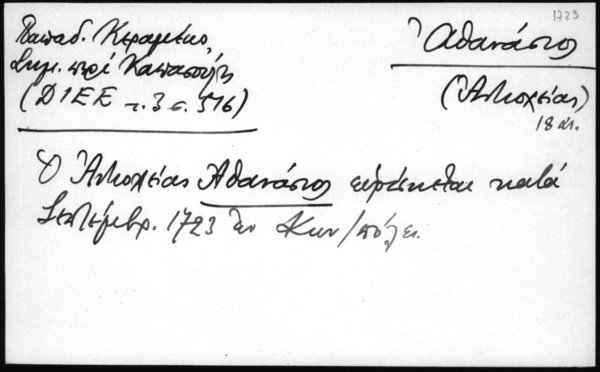 1723
Παπαδ. Κεραμεύς,
Συμ. περί Καπασούλη
(ΔΙΕΕ τ. 3 σ. 516)
Ἀθανάσιος
(Ἀντιοχείας)
18 αἰ.
Ὁ Ἀντιοχείας Ἀθανάσιος εὑρίσκεται κατά
Σεπτέμβρ. 1723 ἐν Κων/πόλει.